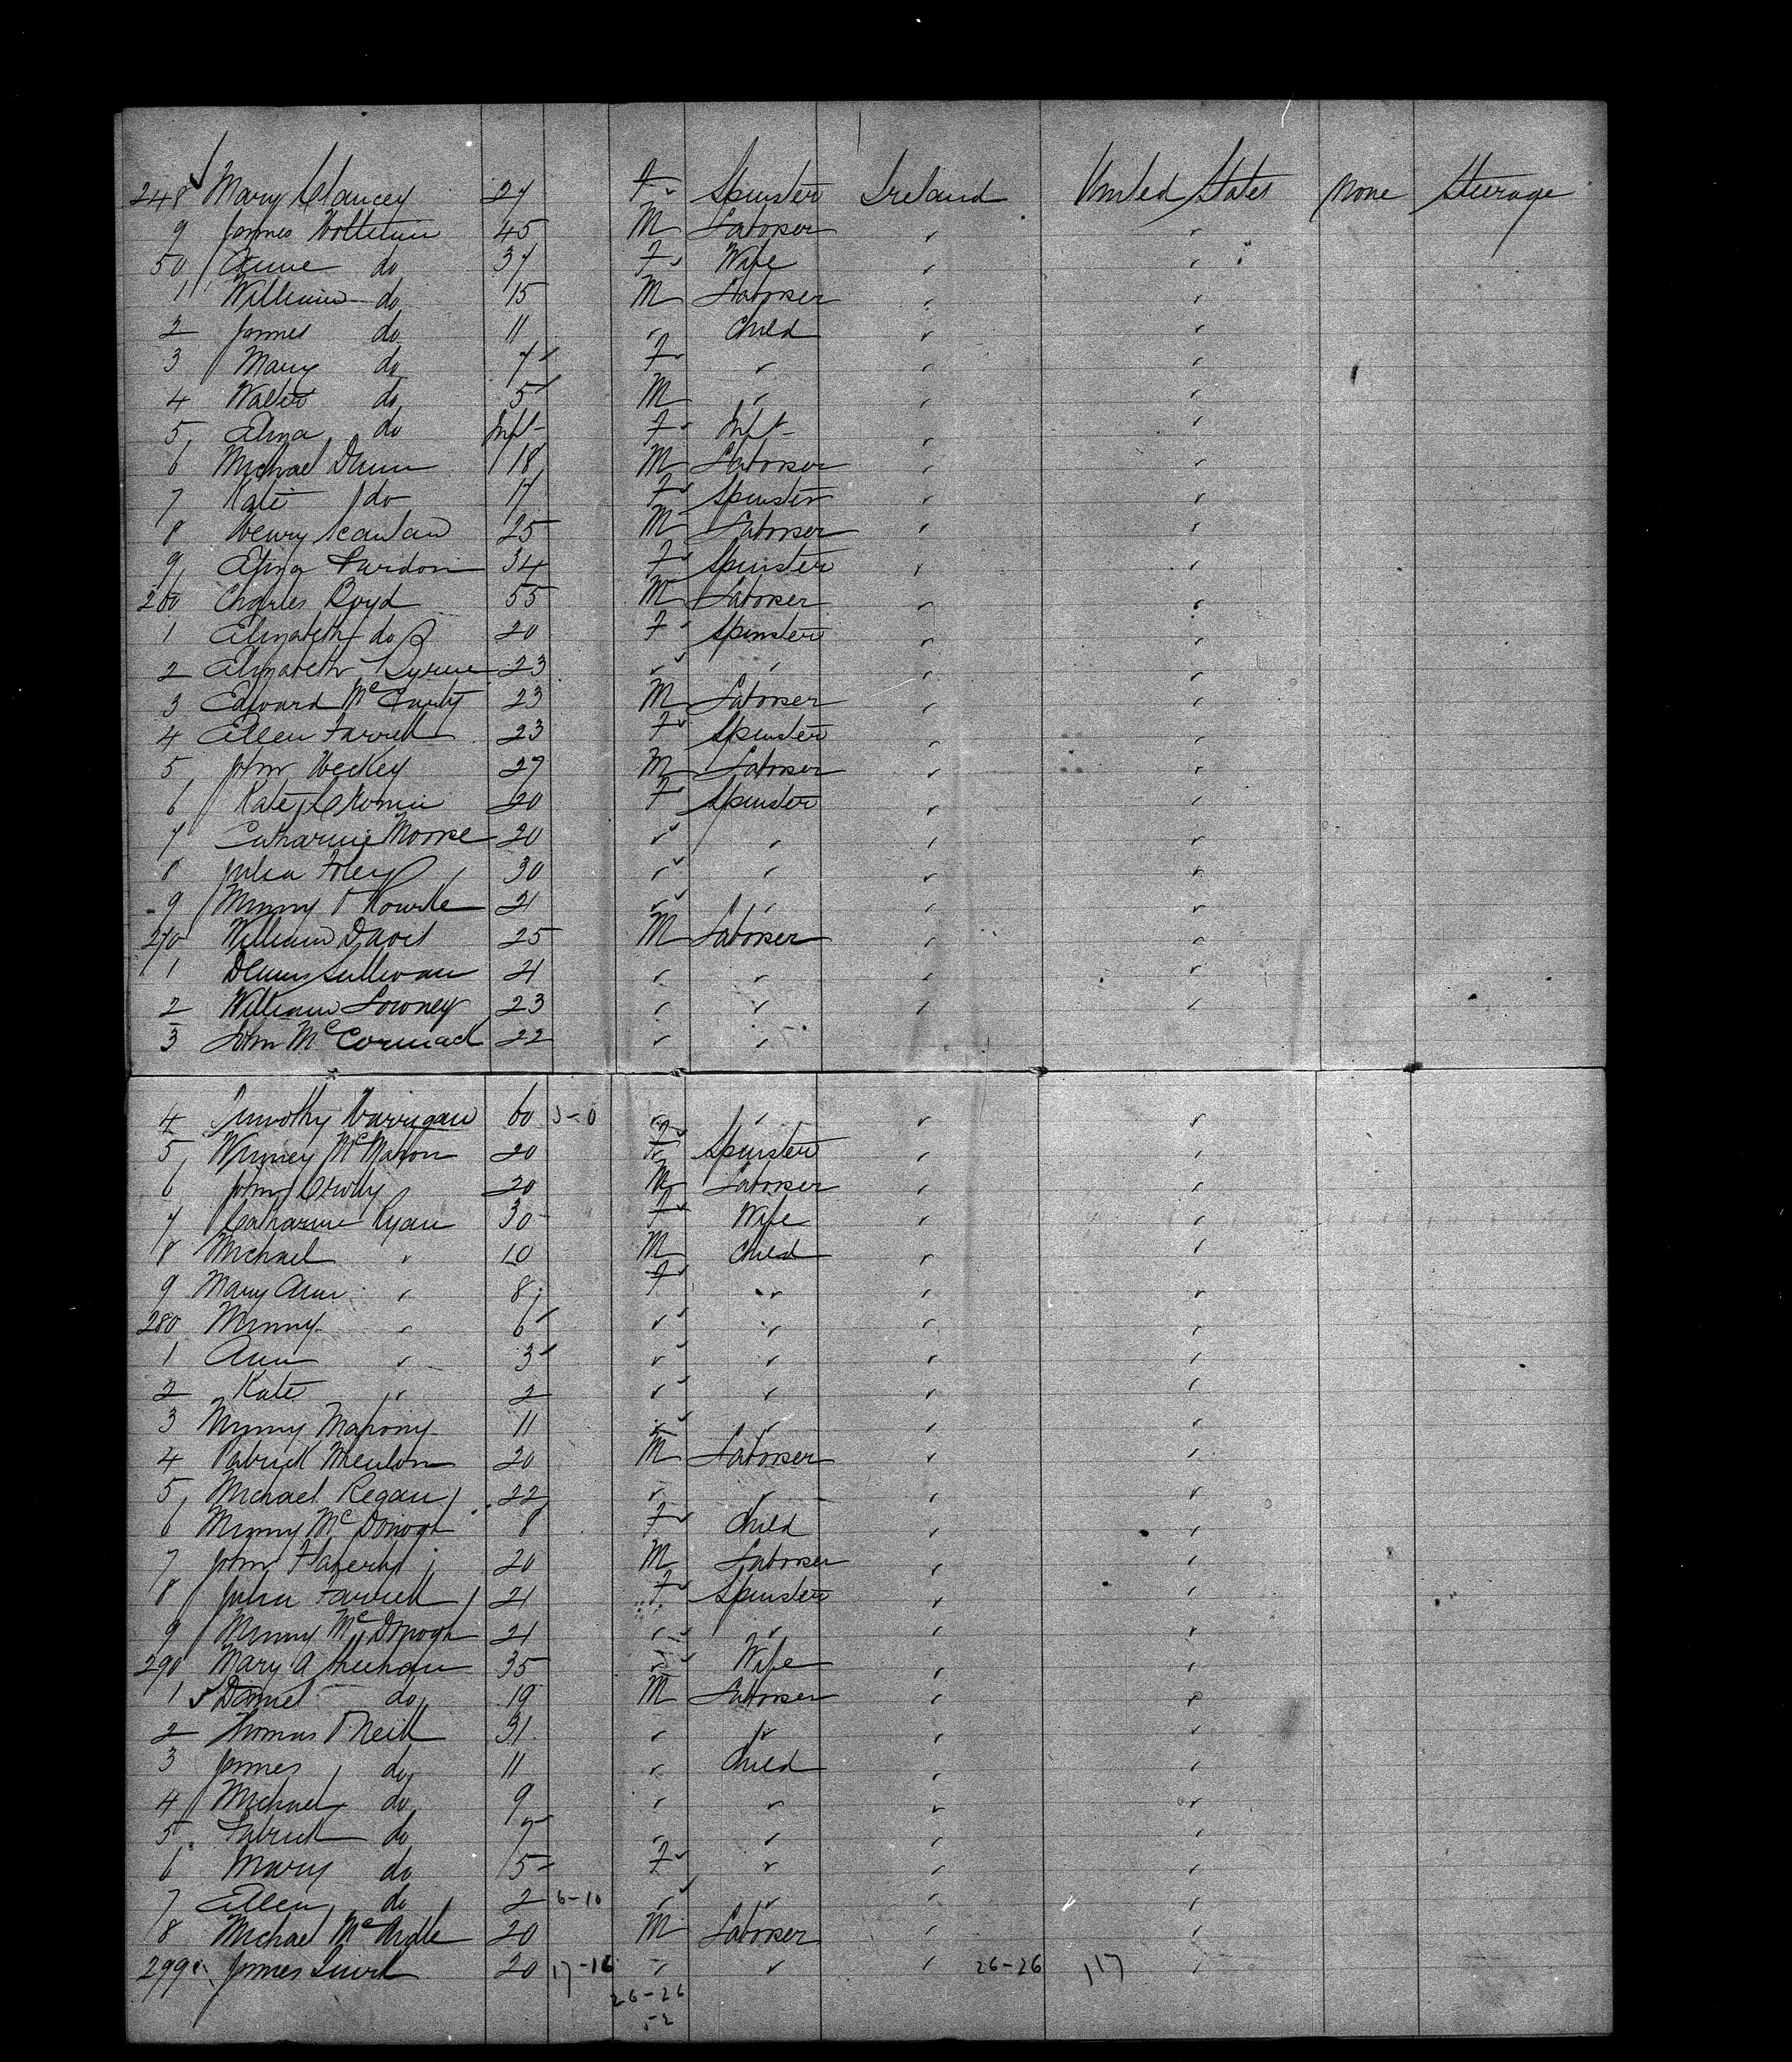 248 Mary Clancey 27 F Spinster Ireland United States none Steerage
9 James 45 M Laborer " "
50 Anne do 37 F Wife " "
1 William do 15 M Laborer " "
2 James do 11 " Child " "
3 Mary do 7 F " " "
4 Walter do 5 M " " "
5 Eliza do Inft F Inft " "
6 Michael Dunn 18 M Laborer " "
7 Kate do 17 F Spinster " "
8 Henry Scanlan 25 M Laborer " "
9 Eliza Purdon 34 F Spinster " "
260 Charles Boyd 55 M Laborer " "
1 Elizabeth do 20 F Spinster " "
2 Elizabeth Byrne 23 " " " "
3 Edward McCarty 23 M Laborer " "
4 Ellen Farrell 23 F Spinster " "
5 John Hickey 27 M Laborer " "
6 Kate Cronin 20 F Spinster " "
7 Catharine Moore 20 " " " "
8 Julia Foley 30 " " " "
9 Minny O'Rourke 21 " " " "
270 William Davis 25 M Laborer " "
1 Dennis Sullivan 21 " " " "
2 William Lowney 23 " " " "
3 John McCormack 22 " "
4 Timothy Harrigan 60 3-0 " " " "
5 Winney McMahon 20 F Spinster " "
6 John Crolly 20 M Laborer " "
7 Catharine Ryan 30 F Wife " "
8 Michael " 10 M Child " "
9 Mary Ann " 8 F " " "
280 Minny " 6 " " " "
1 Ann " 3 " " " "
2 Kate " 2 " " " "
3 Minny Mahony 11 " " " "
4 Patrick 20 M Laborer " "
5 Michael Regan 22 " " " "
6 Minny McDonogh 8 F Child " "
7 John Flaherty 20 M Laborer " "
8 Julia Farrell 21 F Spinster " "
9 Minny McDonogh 21 " " " "
290 Mary A Sheehan 35 " Wife " "
1 Daniel do 19 M Laborer " "
2 Thomas O'Neill 31 " " " "
3 James do 11 " Child " "
4 Michael do 9 " " " "
5 Patrick do 7 " " " "
6 Mary do 5 F " " "
7 Ellen do 2 6-10 " " " "
8 Michael McArdle 20 M Laborer " "
299 James Quirk 20 17-16 " " " 26-26 117 "
26-26
52